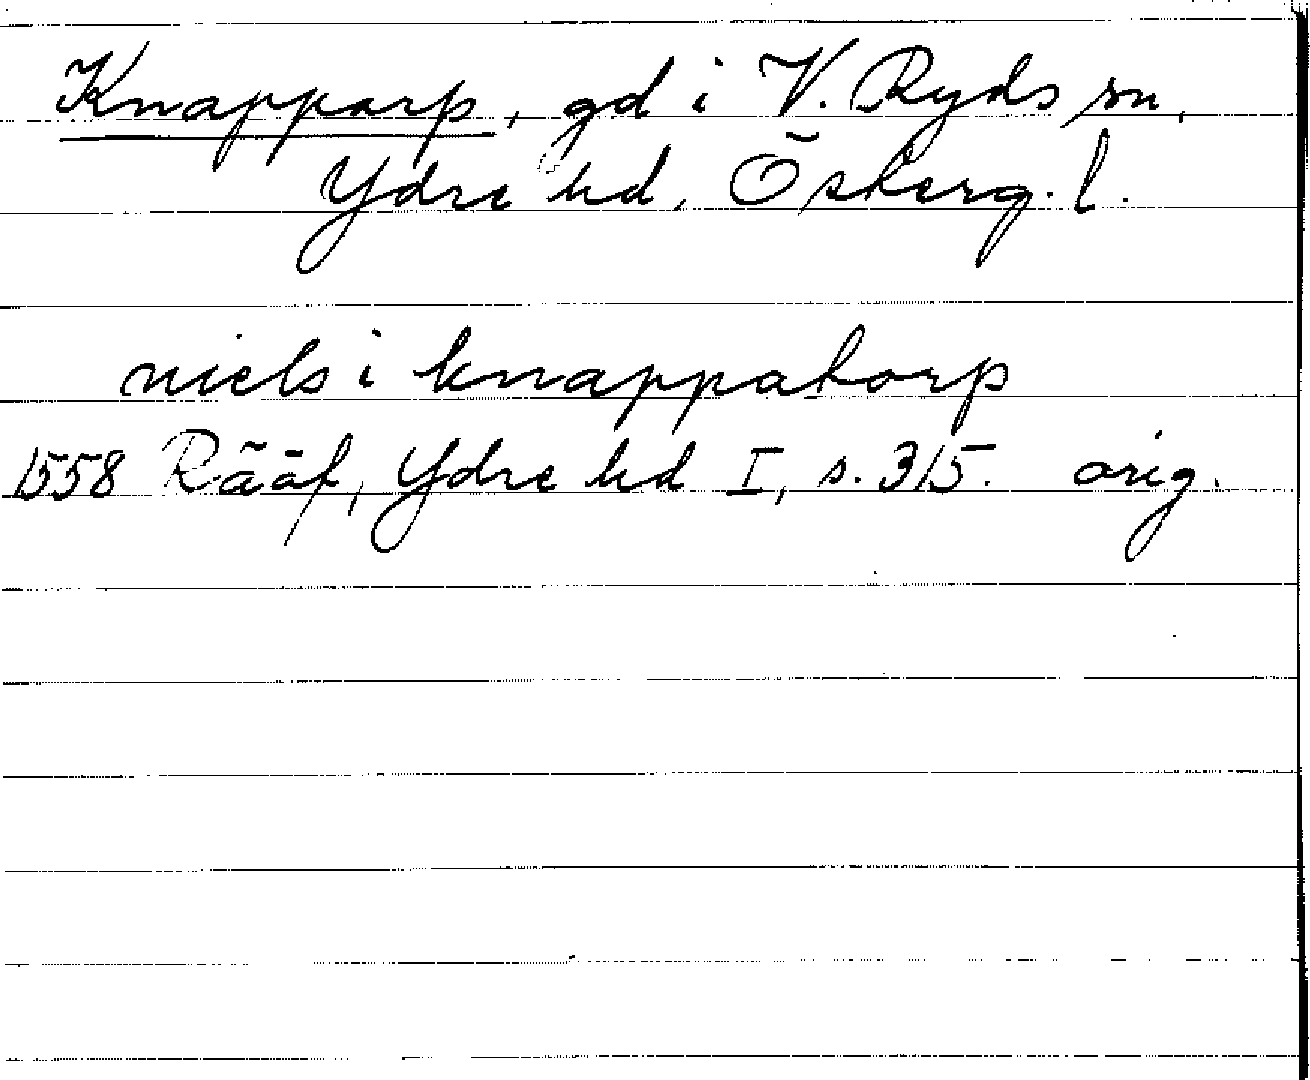 Knapparp, gd i V. Ryds sn,
Ydre hd, Österg. l.
niels i knappatorp
1558 Rääf, Ydre hd I, s. 315. orig.